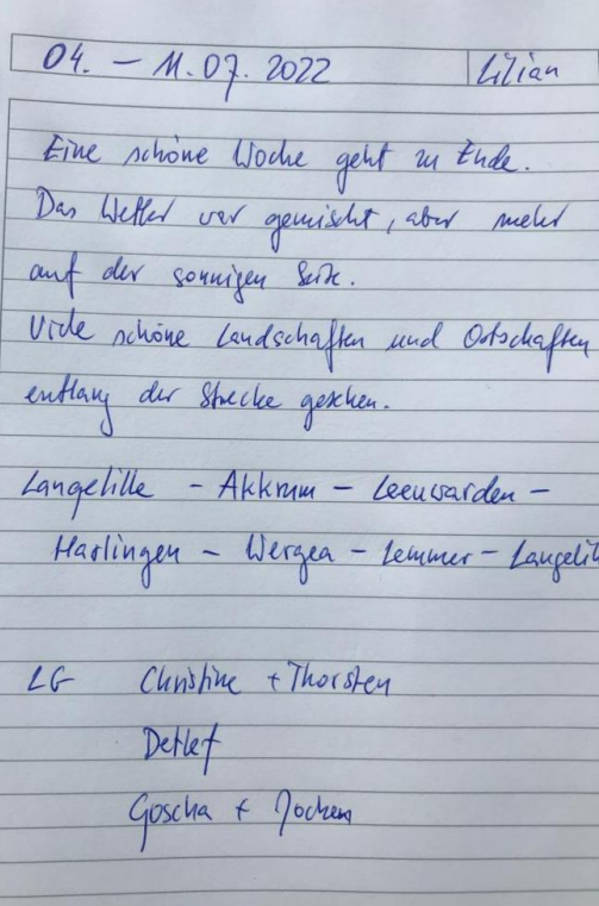 04. – 11.07.2022 Lilian
Eine schöne Woche geht zu Ende.
Das Wetter war gemischt, aber mehr
auf der sonnigen Seite.
Viele schöne Landschaften und Ortschaften
entlang der Strecke gesehen.
Langelille – Akkrum – Leeuwarden –
Harlingen – Wergea – Lemmer – Langelill
LG Christine + Thorsten
Detlef
Goscha + Jochem